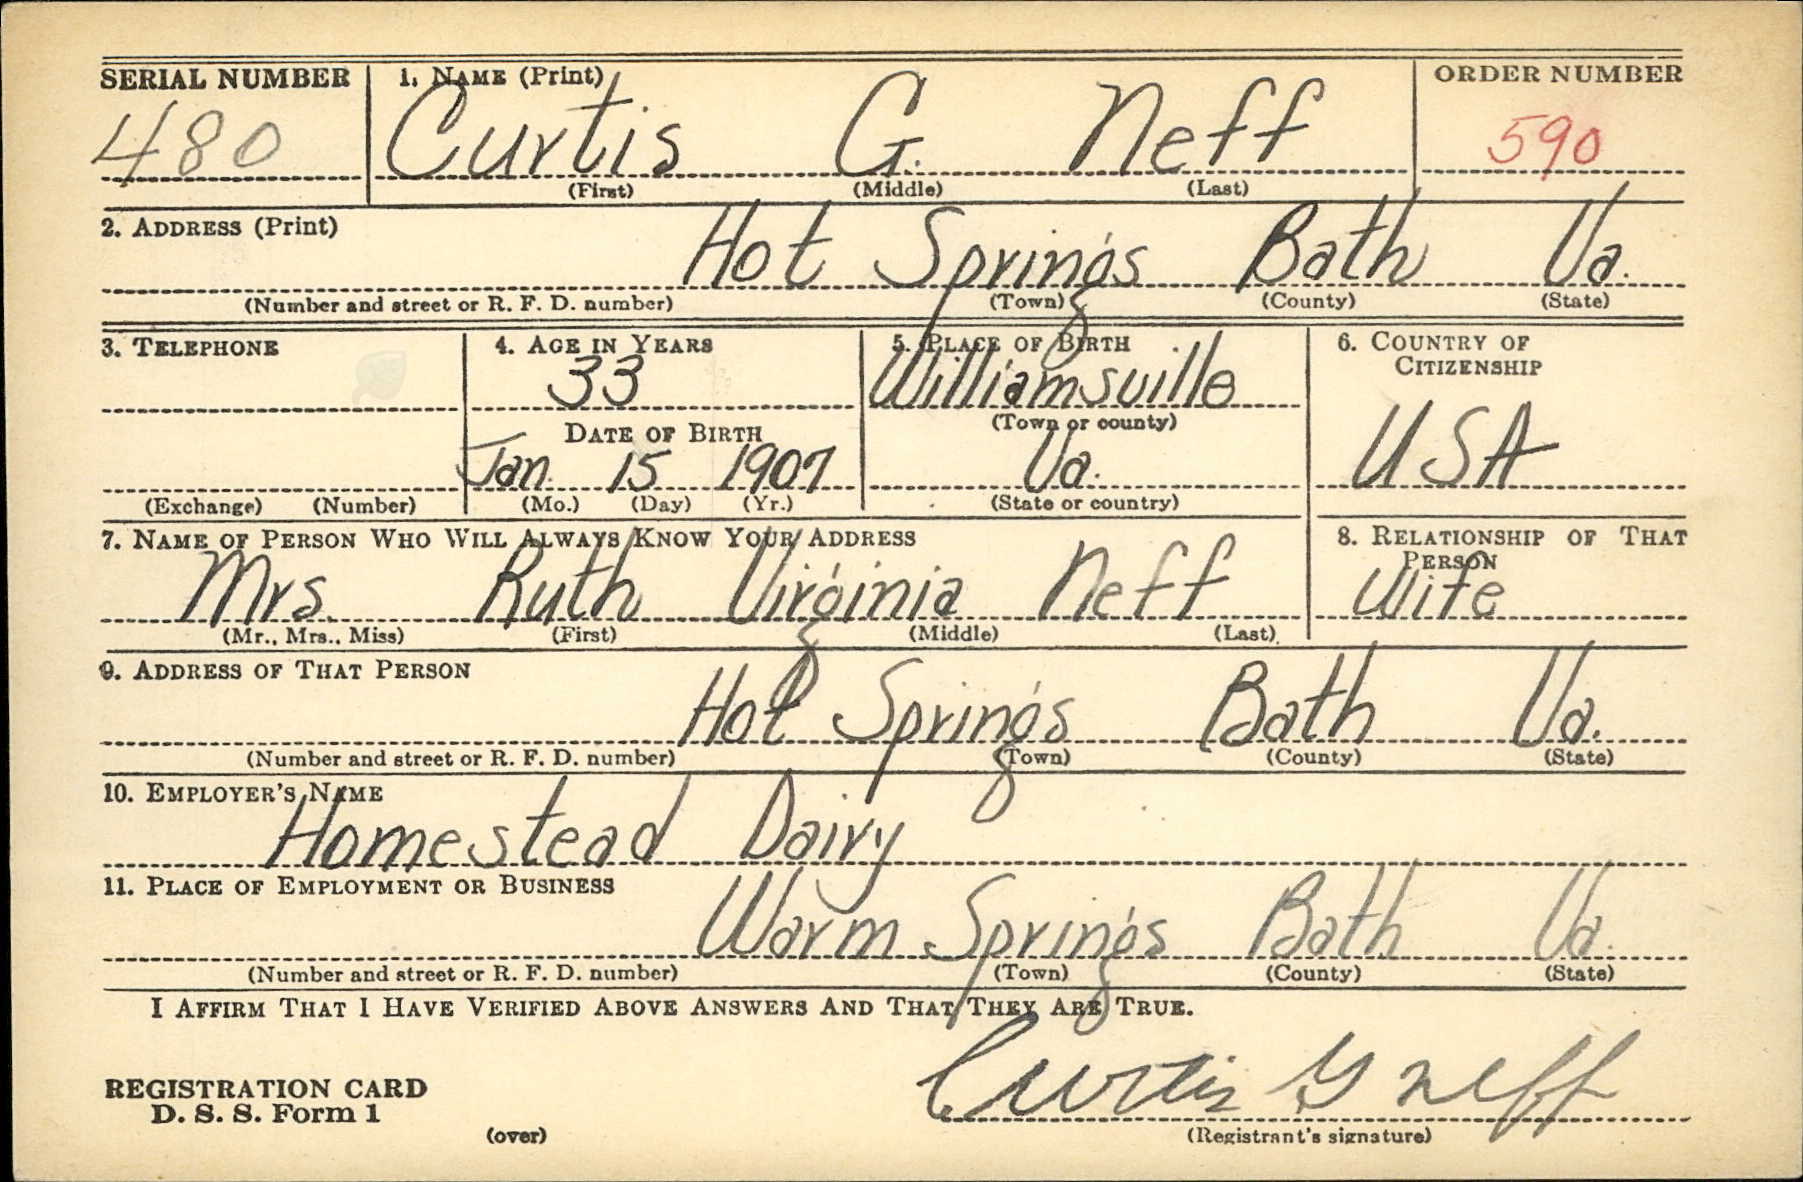 SERIAL NUMBER 1. NAME (Print) ORDER NUMBER
480 Curtis G. Neff 590
(First) (Middle) (Last)
2. ADDRESS (Print)
Hot Springs Bath Va.
(Number and street or R. F. D. number) (Town) (County) (State)
3. TELEPHONE 4. AGE IN YEARS 5. PLACE OF BIRTH 6. COUNTRY OF CITIZENSHIP
33 Williamsville
(Town or county)
DATE OF BIRTH
Jan. 15 1907 Va. USA
(Exchange) (Number) (Mo.) (Day) (Yr.) (State or country)
7. NAME OF PERSON WHO WILL ALWAYS KNOW YOUR ADDRESS 8. RELATIONSHIP OF THAT PERSON
Mrs. Ruth Virginia Neff Wife
(Mr., Mrs., Miss) (First) (Middle) (Last)
9. ADDRESS OF THAT PERSON
Hot Springs Bath Va.
(Number and street or R. F. D. number) (Town) (County) (State)
10. EMPLOYER'S NAME
Homestead Dairy
11. PLACE OF EMPLOYMENT OR BUSINESS
Warm Springs Bath Va.
(Number and street or R. F. D. number) (Town) (County) (State)
I AFFIRM THAT I HAVE VERIFIED ABOVE ANSWERS AND THAT THEY ARE TRUE.
Curtis G Neff
REGISTRATION CARD
D. S. S. Form 1
(over) (Registrant's signature)